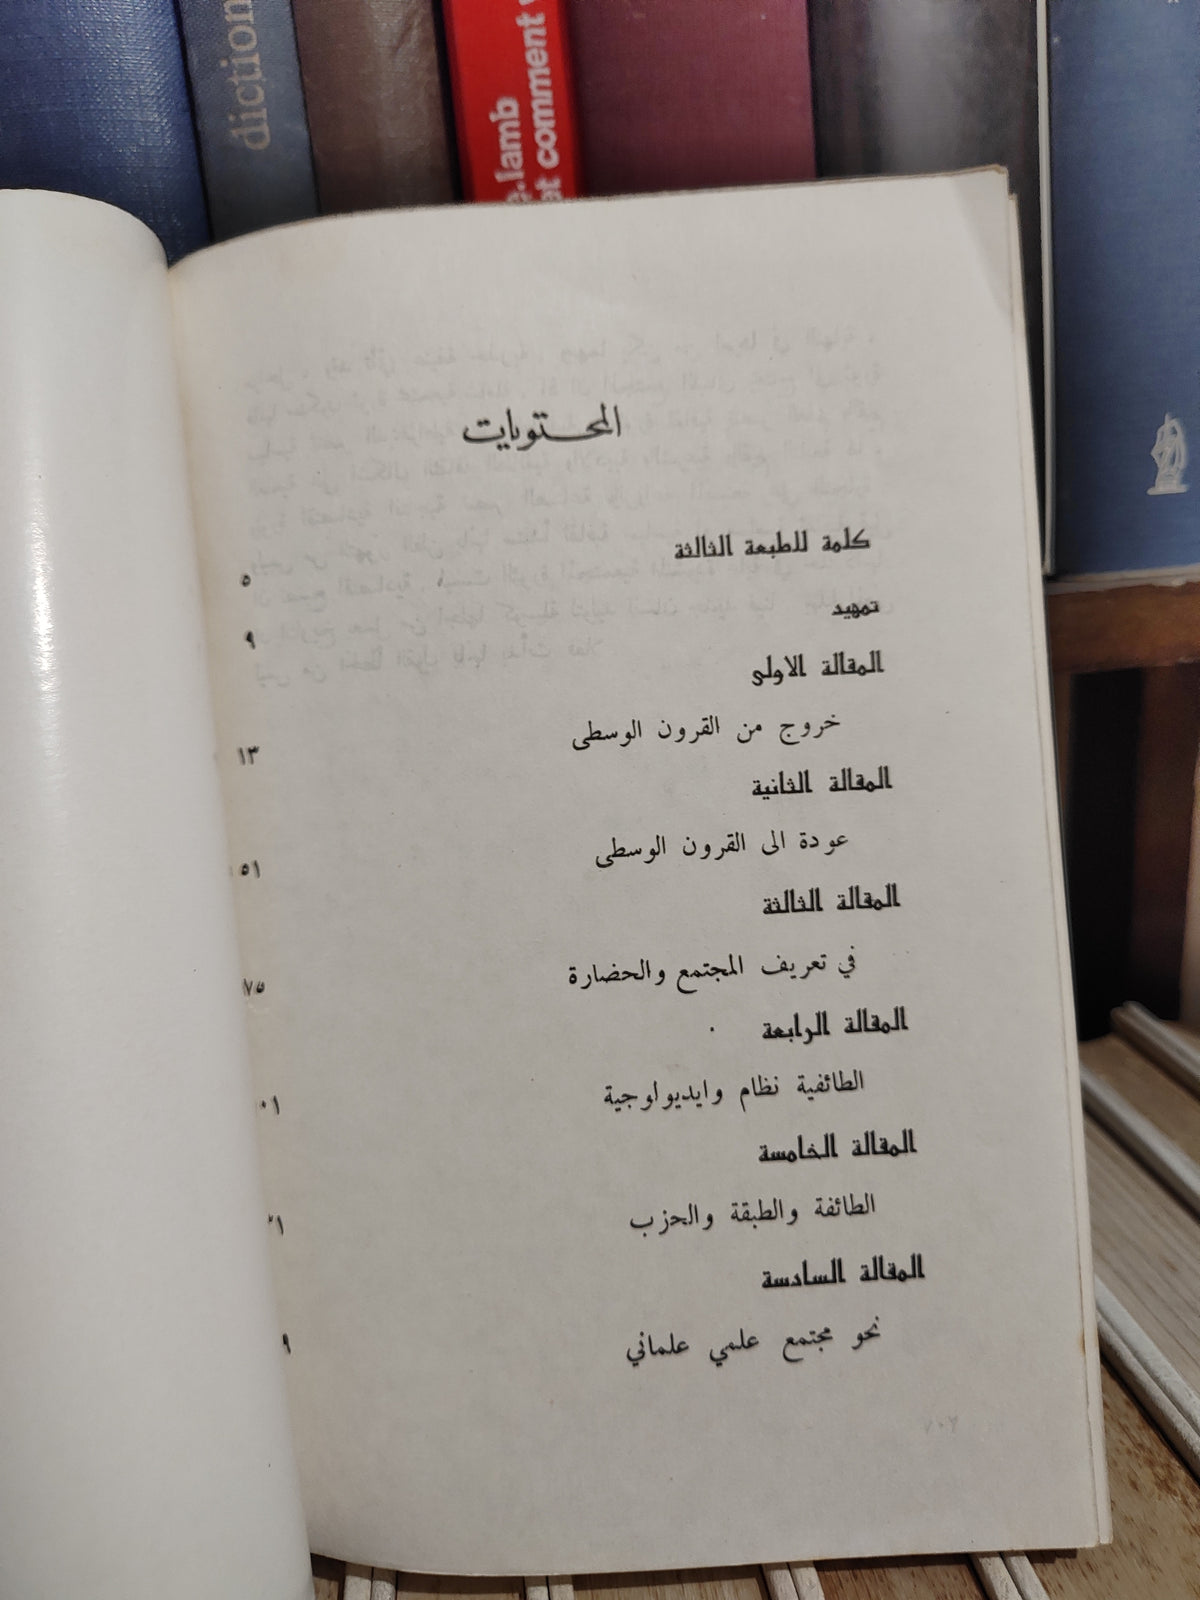 diction
e.lamb
at comment v
المحتويات
كلمة للطبعة الثالثة ٥
تمهيد ٩
المقالة الاولى
خروج من القرون الوسطى ١٣
المقالة الثانية
عودة الى القرون الوسطى ٥١
المقالة الثالثة
في تعريف المجتمع والحضارة ٧٥
المقالة الرابعة
الطائفية نظام وايديولوجية ١٠١
المقالة الخامسة
الطائفة والطبقة والحزب
المقالة السادسة
نحو مجتمع علمي علماني